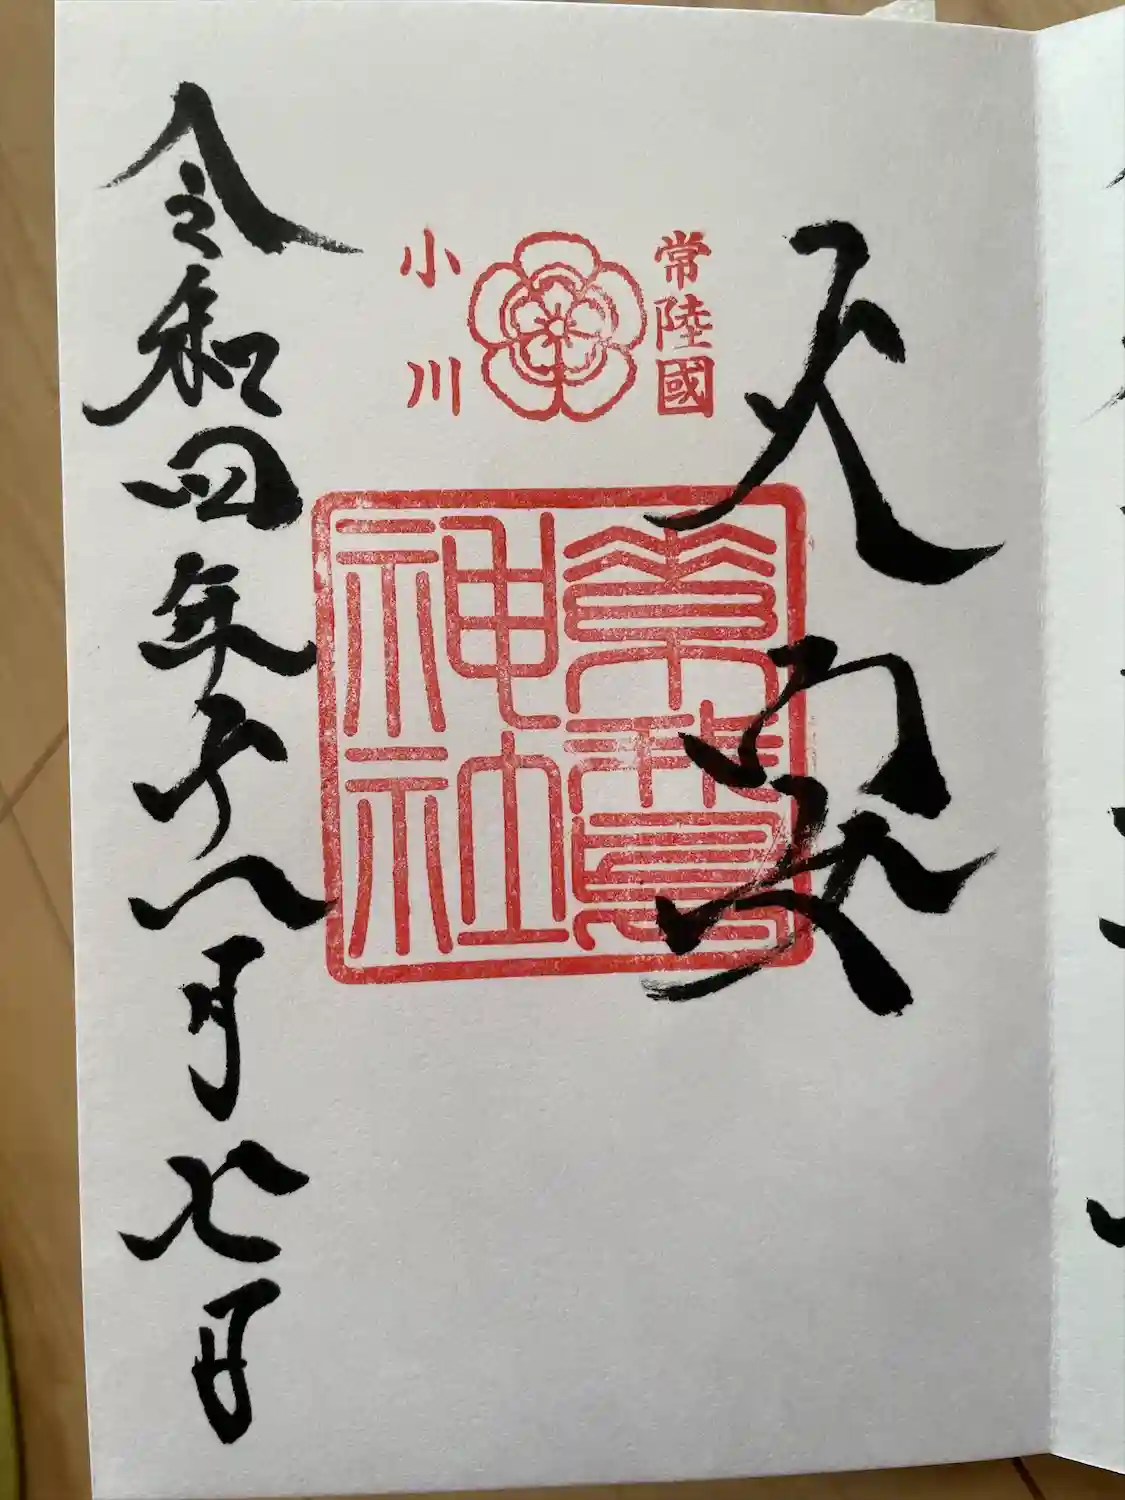 常陸國
小川
素鵞
神社
令和四年十一月七日